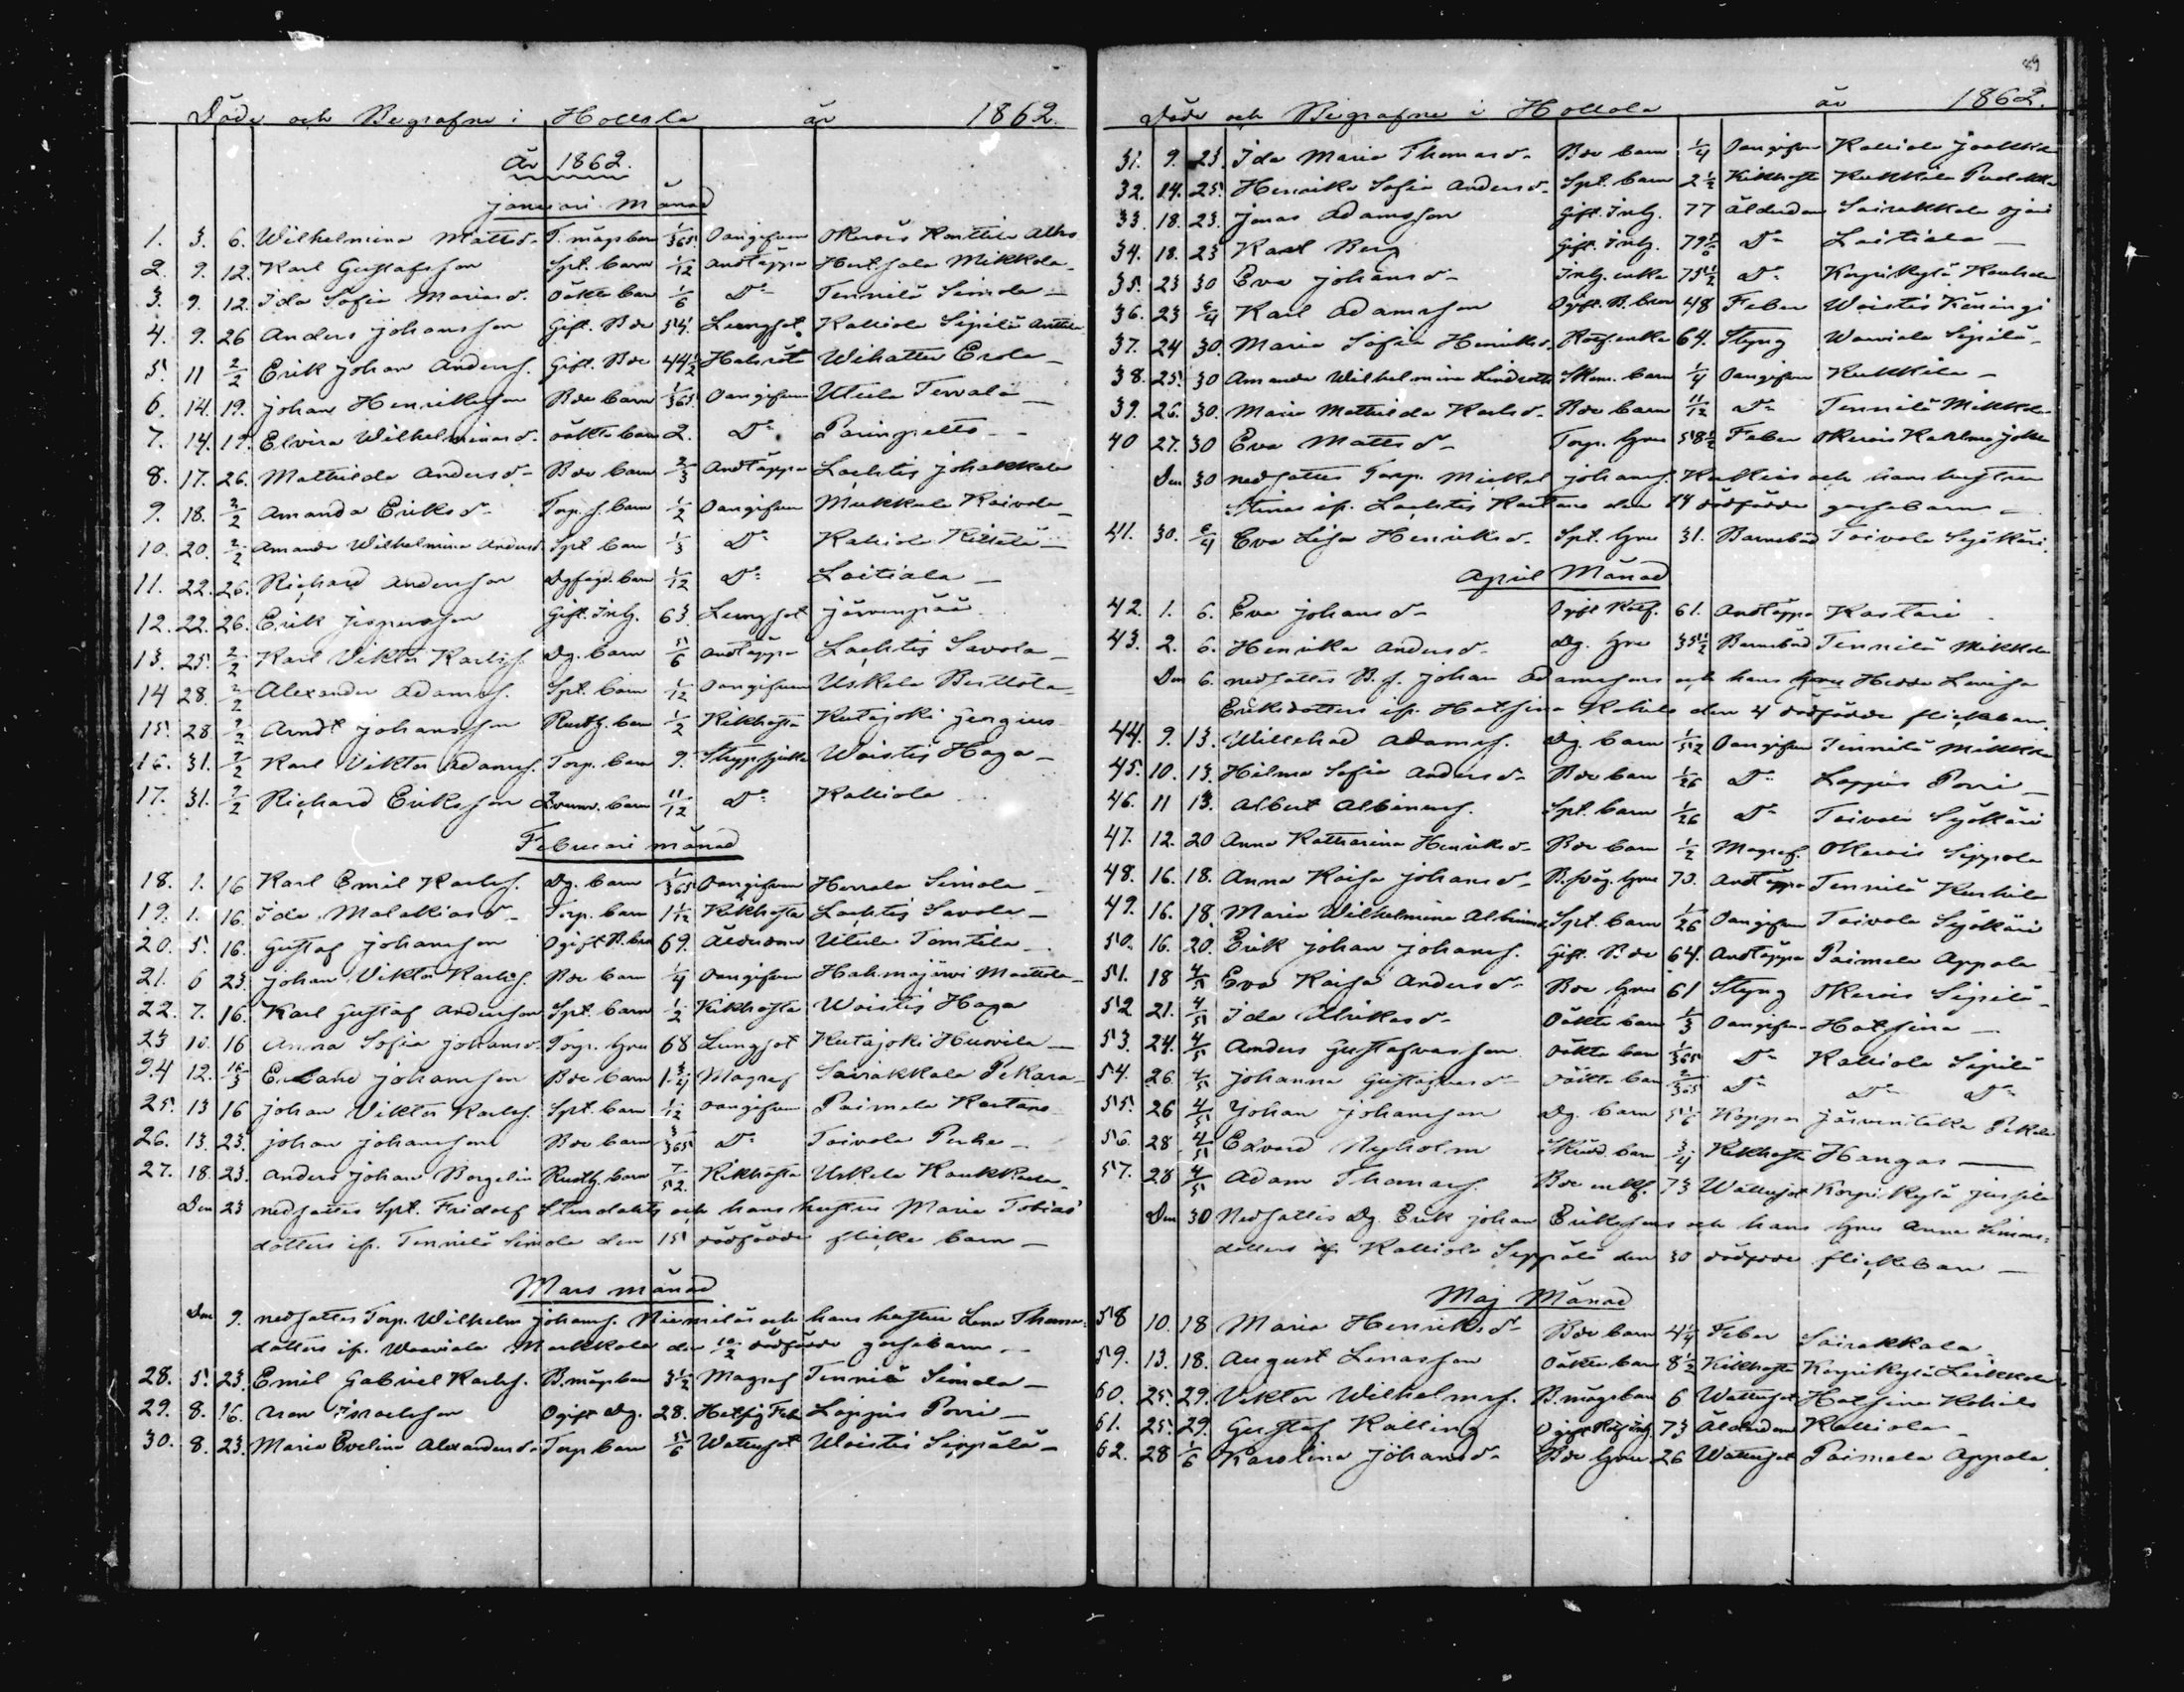 Döde och Begrafne i Hollola år 1862.
År 1862.
Januari Månad
1. 3. 6. Wilhelmina Mattsd. T. mågs barn 1/365 Oangifven Okerois Konttila Alho
2. 9. 12. Karl Gustafsson Spt. barn 1/12 Andtäppa Hertsala Mikkola
3. 9. 12. Ida Sofia Mariasd. Oäkta barn 1/6 Do Tennilä Simola
4. 9. 26 Anders Johansson Gift. Bde 54. Lungsot Kalliola Sipilä Anttila
5. 11 2/2 Erik Johan Anderss. Gift. Bde 44 1/2 Halsröta Wihattu Erola
6. 14. 19. Johan Henriksson Bde barn 1/365 Oangifven Utula Tervalä
7. 14. 19. Elvira Wilhelminasd. oäkta barn 2. Do Paringelts
8. 17. 26. Mathilda Andersd. Bde barn 2/3 Andtäppa Lachtis Johakkala
9. 18. 2/2 Amanda Eriksd. Torp. s. barn 1/2 Oangifven Mukkula Kaivola
10. 20. 2/2 Amanda Wilhelmina Andersd. Spt. barn 1/3 Do Kaliola Kittelä
11. 22. 26. Richard Andersson barn 1/12 Do Laitiala
12. 22. 26. Erik Jespersson Gift. Inh. 63. Lungsot Järvenpää
13. 25. 2/2 Karl Viktor Karlss. Dg. barn 5/6 Andtäppa Lachtis Savola
14 28. 2/2 Alexander Adamss. Spt. barn 1/12 Oangifven Uskila Berttola
15. 28 2/2 Arndt Johansson Rusth. barn 1/2 Kikhosta Kutajoki Yrgius
16. 31. 2/2 Karl Viktor Adamss. Torp. barn 9. Strypsjuka Woistis Haga
17. 31. 2/2 Richard Eriksson barn 11/12 Do Kalliola
Februari månad
18. 1. 16 Karl Emil Karlss. Dg. barn 1/365 Oangifven Herrala Simola
19. 1. 16. Ida Malakiasd. Torp. barn 1 1/12 Kikhosta Lachtis Savola
20. 5. 16. Gustaf Johansson Ogift B. bror 69. Ålderdom Utula Tomtila
21. 6 23. Johan Viktor Karlss. Bde barn 1/4 Oangifven Hahmajärvi Mattola
22. 7. 16. Karl Gustaf Andersson Spt. barn 1/2 Kikhosta Woistis Haga
23 10. 16 Anna Sofia Johansd. Torp. hru 68 Lungsot Kutajoki Huovila
24 12. 16/3 Erland Johansson Bde barn 1 3/4 Magref Sairakkala Pekara
25. 13 16 Johan Viktor Karlss. Spt. barn 1/12 oangifven Paimela Kartano
26. 13. 23. Johan Johansson Bde barn 3/365 Do Toivola Perho
27. 18. 23. Anders Johan Borgelin Rusth. barn 7/52. Kikhosta Uskila Koukkala
Den 23 nedsattes Spt. Fridolf Stendahls och hans hustrus Maria Tobias
dotters ifr. Tennilä Simola den 15 dödfödde flicke barn
Mars månad
Den 9. nedsattes Torp. Wilhelm Johanss. Niemiläs och hans hustru Lena Thomas
dotters ifr. Waaniala Markkola den 10/2 dödfödde gossebarn
28. 5. 23. Emil Gabriel Karlss. B. mågs barn 3 1/2 Magref Tennilä Simola
29. 8. 16. Israelsson Ogift Dg. 28. Hetsig Feb. Lappis Porri
30. 8. 23. Maria Evelina Alexandersd. Torp barn 5/6 Wattusot Woistis Seppälä
89
Döde och Begrafne i Hollola år 1862.
31. 9. 23. Ida Maria Thomasd. Bde barn 1/4 Oangifven Kalliola Jaakkola
32. 14. 25. Henrika Sofia Andersd. Spt. barn 2 1/2 Kikhosta Kukkila
33. 18. 23. Jonas Adamsson Gift. Inh. 77 Ålderdom Sairakkala Ojari
34. 18. 23 Karl Berg Gift. Inh. 79 Do Laitiala
35. 23 30 Eva Johansd. Inh. enka 75 1/2 Do Korpikylä
36. 23 6/4 Karl Adamsson Ogift. B. bror 48 Feber Woistis Käningi
37. 24 30. Maria Sofia Henriksd. enka 64. Styng Waaniala Sipilä
38. 25. 30 Amanda Wilhelmina Lindroth Skom. barn 1/4 Oangifven Kukkila
39. 26. 30. Maria Mathilda Karlsd. Bde barn 11/12 Do Tennilä Mikkola
40 27. 30 Eva Mattsd. Torp. hru 58 1/2 Feber Okerois
Den 30 nedsattes Torp. Mickel Johanss. och hans hustrus
Stinas ifr. Lachtis Kartano den 14 dödfödde gossebarn
41. 30. 6/4 Eva Lisa Henriksd. Spt. hru 31. Barnsbörd Toivola Syökäri
April Månad
42. 1. 6. Eva Johansd. Ogift 61. Andtäppa Kastari
43. 2. 6. Henrika Andersd. Dg. hru 35 1/2 Barnsbörd Tennilä Mikkola
Den 6. nedsattes B. s. Johan Adamssons och hans Hedda Lovisa
Eriksdotters ifr. Hatsina Kokila den 4 dödfödde flickebarn
44. 9. 13. Willehad Adamss. Dg. barn 1/52 Oangifven Tennilä Mikkola
45. 10. 13. Hilma Sofia Andersd. Bde barn 1/26 Do Lappis Porri
46. 11 13. Albert Albinuss. Spt. barn 1/26 Do Toivola Syökäri
47. 12. 20 Anna Katharina Henriksd. Bde barn 1/2 Magref. Okerois Seppola
48. 16. 18. Anna Kaisa Johansd. B. svåg. hru 70. Andtäppa Tennilä
49. 16. 18. Maria Wilhelmina Albinusd. Spt. barn 1/26 Oangifven Toivola Syökäri
50. 16. 20. Erik Johan Johanss. Gift. Bde 64. Andtäppa Paimela Appola
51. 18 4/5 Eva Kaisa Andersd. Bde hru 61 Styng Okerois Sipilä
52 21. 4/5 Ida Ulrikasd. Oäkta barn 1/3 Oangifven Hatsina
53. 24. 4/5 Anders Gustafvasson Oäkta barn 1/365 Do Kalliola Sipilä
54. 26. 4/5 Johanna Gustafvasd. Oäkta barn 2/365 Do Do Do
55. 26 4/5 Johan Johansson Dg. barn 5 1/6 Koppor Järventaka Pekola
56. 28 4/5 Edvard Nyholm Skräd. barn 3/4 Kikhosta Hangas
57. 28 4/5 Adam Thomass. Bde enkl. 73 Wattusot Korpikylä Jussila
Den 30 Nedsattes Dg. Erik Johan Erikssons och hans hru Anna Simons
dotters ifr. Kalliola Seppälä den 30 dödfödde flickebarn
Maj Månad
58 10. 18 Maria Henriksd. Bde barn 4 1/4 Feber Sairakkala
59. 13. 18. August Lenasson Oäkta barn 8 1/2 Kikhosta Korpikylä Leikkola
60. 25. 29. Viktor Wilhelmss. B. mågs barn 6 Wattusot Hatsina Kokila
61. 25. 29. Gustaf Kalling Ogift 73 Ålderdom Kalliola
62. 28 1/6 Karolina Johansd. Bde hru 26 Wattusot Paimela Appola